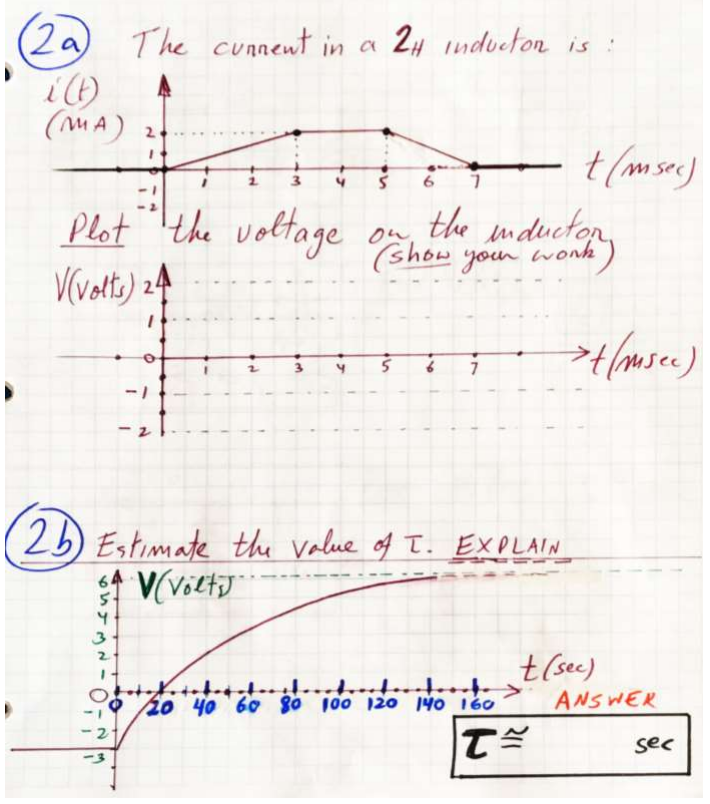 2a The current in a 2H inductor is :
i(t)
(mA)
2
1
-1
-2
1 2 3 4 5 6 7
t(msec)
Plot the voltage on the inductor
(show your work)
V(Volts) 2
1
0
1 2 3 4 5 6 7
t(msec)
-1
-2
2b Estimate the value of τ. EXPLAIN
6 V(Volts)
5
4
3
2
1
t(sec)
0
0 20 40 60 80 100 120 140 160
ANSWER
-1
-2
-3
τ ≅ sec